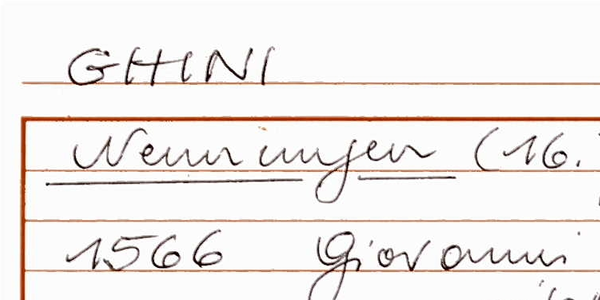 GHINI
Nennungen (16.
1566 Giovanni